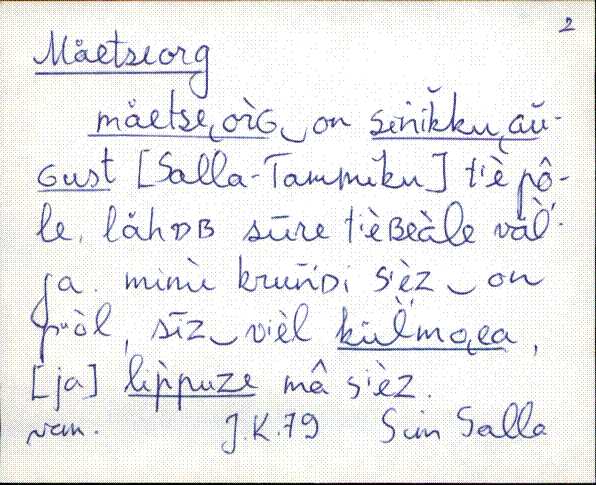 2
Mäetseorg
mäetse‿orG‿on senikku‿au-
Gust [Salla-Tammiku] t'è pô-
le, lähDB sūre tièBeàle väl'-
ja. minù krunDi sièz‿on
puòl, sīz‿vièl külmaea,
[ja] lippuze mâ sièz.
van. J.K.79 Siim Salla